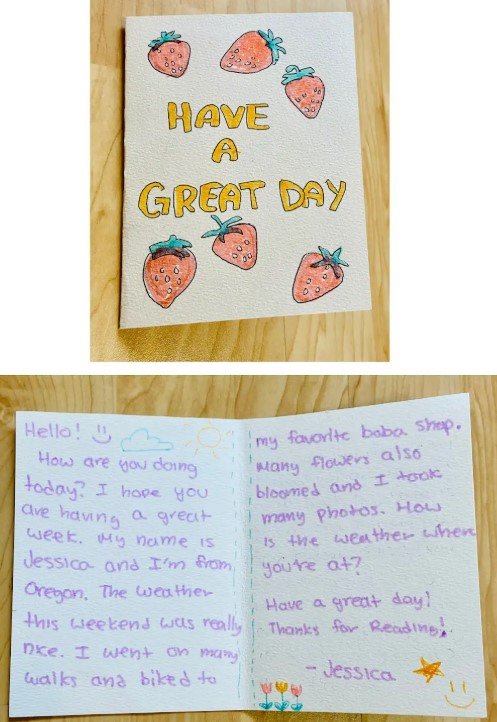 HAVE
A
GREAT DAY
Hello!
How are you doing
today? I hope you
are having a great
week. My name is
Jessica and I'm from
Oregon. The weather
this weekend was really
nice. I went on many
walks and biked to
my favorite boba shop.
Many flowers also
bloomed and I took
many photos. How
is the weather where
you're at?
Have a great day!
Thanks for Reading!
- Jessica